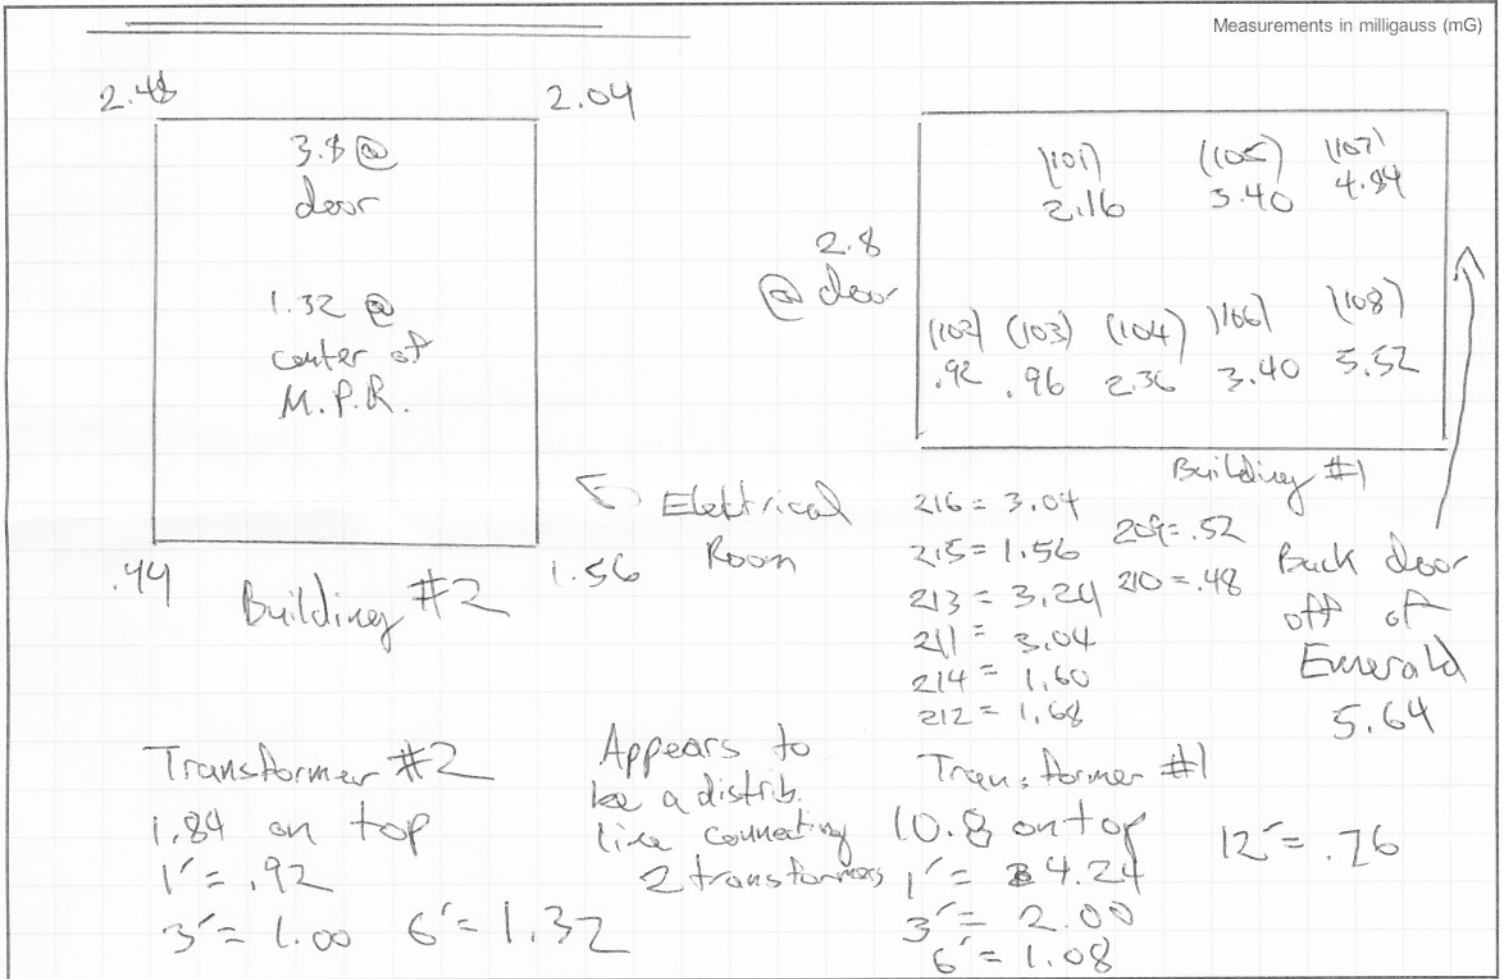 Measurements in milligauss (mG)
2.48
2.04
3.8 @
door
1.32 @
center of
M.P.R.
.44
1.56
Building #2
Electrical
Room
2.8
@ door
(101) (105) (107)
2.16 3.40 4.84
(102) (103) (104) (106) (108)
.92 .96 2.36 3.40 5.52
Building #1
216 = 3.04
215 = 1.56
213 = 3.24
211 = 3.04
214 = 1.60
212 = 1.68
209 = .52
210 = .48
Back door
off of
Emerald
5.64
Transformer #2
1.84 on top
1' = .92
3' = 1.00 6' = 1.32
Appears to
be a distrib.
line connecting
2 transformers
Transformer #1
10.8 on top
1' = 4.24
3' = 2.00
6' = 1.08
12' = .76